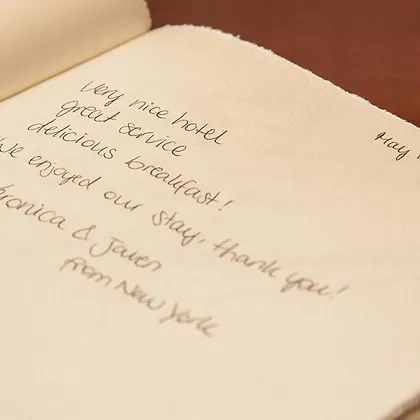 May
very nice hotel
great service
delicious breakfast!
we enjoyed our stay, thank you!
eronica & Jaren
from New York